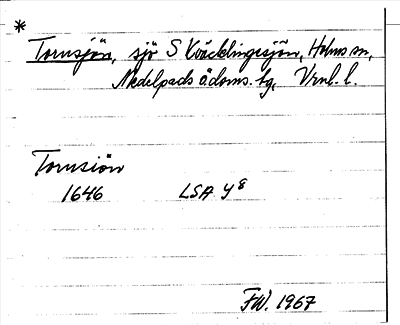 *
Tornsjön, sjö S Kväcklingesjön, Holms sn,
Medelpads v. doms. hg, Vrnl. l.
Tornsiön
1646 LSA Y 8
FW. 1967